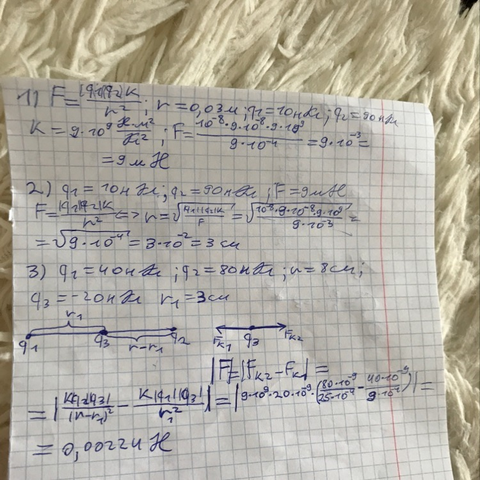 1) F = |q1||q2|K / r² ; r = 0,03 м ; q1 = 10 нКл ; q2 = 90 нКл
K = 9·10⁹ Н·м²/Кл² ; F = 10⁻⁸·9·10⁻⁸·9·10⁹ / 9·10⁻⁴ = 9·10⁻³ =
= 9 мН
2) q1 = 10 нКл ; q2 = 90 нКл ; F = 9 мН
F = |q1||q2|K / r² <=> r = √(|q1||q2|K / F) = √(10⁻⁸·9·10⁻⁸·9·10⁹ / 9·10⁻³) =
= √(9·10⁻⁴) = 3·10⁻² = 3 см
3) q1 = 40 нКл ; q2 = 80 нКл ; r = 8 см ;
q3 = -20 нКл r1 = 3 см
r1
q1 q3 r-r1 q2 Fк1 q3 Fк2
|F| = |Fк2 - Fк1| =
= |K|q2||q3| / (r-r1)² - K|q1||q3| / r1²| = |9·10⁹·20·10⁻⁹·(80·10⁻⁹ / 25·10⁻⁴ - 40·10⁻⁹ / 9·10⁻⁴)| =
= 0,00224 Н